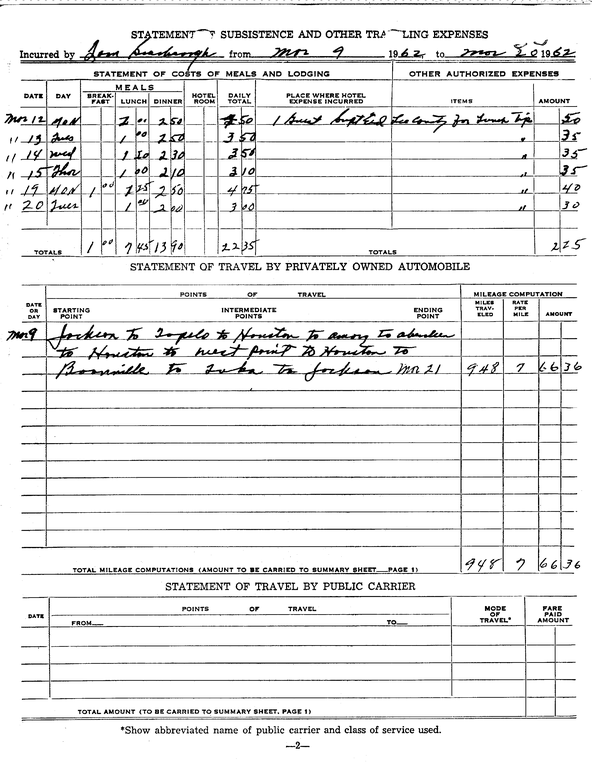 STATEMENT OF SUBSISTENCE AND OTHER TRAVELING EXPENSES
Incurred by Tom Scarbrough from Mar 9 1962 to Mar 20 1962
STATEMENT OF COSTS OF MEALS AND LODGING OTHER AUTHORIZED EXPENSES
DATE DAY MEALS BREAK-FAST LUNCH DINNER HOTEL ROOM DAILY TOTAL PLACE WHERE HOTEL EXPENSE INCURRED ITEMS AMOUNT
Mar 12 MON 2 00 2 50 50 1 Guest Supt Ed Lee County for Lunch Tip 50
" 13 Tues 1 00 2 50 3 50 " 35
" 14 Wed 1 20 2 30 3 50 " 35
" 15 Thor 1 00 2 10 3 10 " 35
" 19 MON 1 00 1 25 2 50 4 75 " 40
" 20 Tues 1 00 2 00 3 00 " 30
TOTALS 1 00 7 45 13 90 22 35 TOTALS 2 25
STATEMENT OF TRAVEL BY PRIVATELY OWNED AUTOMOBILE
DATE OR DAY POINTS OF TRAVEL MILEAGE COMPUTATION
STARTING POINT INTERMEDIATE POINTS ENDING POINT MILES TRAV-ELED RATE PER MILE AMOUNT
Mar 9 Jackson to Tupelo to Houston to Amory to Aberdeen
to Houston to West Point to Houston to
Booneville to Iuka to Jackson Mar 21 948 7 66 36
TOTAL MILEAGE COMPUTATIONS (AMOUNT TO BE CARRIED TO SUMMARY SHEET PAGE 1) 948 7 66 36
STATEMENT OF TRAVEL BY PUBLIC CARRIER
DATE POINTS OF TRAVEL MODE OF TRAVEL* FARE PAID AMOUNT
FROM TO
TOTAL AMOUNT (TO BE CARRIED TO SUMMARY SHEET, PAGE 1)
*Show abbreviated name of public carrier and class of service used.
—2—